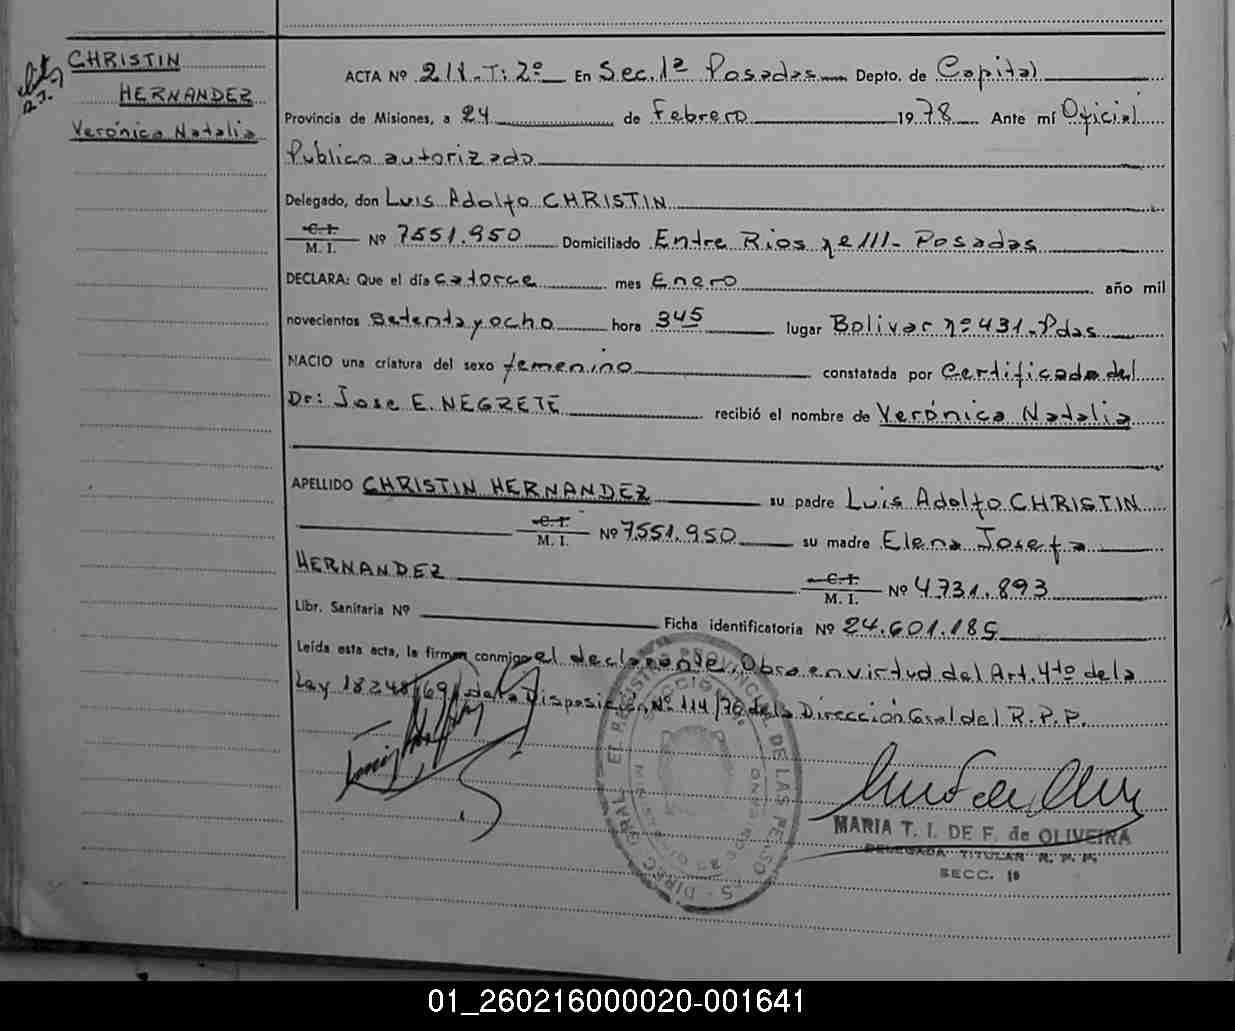 CHRISTIN
HERNANDEZ
Verónica Natalia
ACTA Nº 211.T:2º En Sec.1ª Posadas Depto. de Capital
Provincia de Misiones, a 24 de Febrero 1978 Ante mí Oficial
Publico autorizado
Delegado, don Luis Adolfo CHRISTIN
C.I.
M. I. Nº 7551.950 Domiciliado Entre Rios nº 111- Posadas
DECLARA: Que el día catorce mes Enero año mil
novecientos setenta y ocho hora 345 lugar Bolivar nº 431-Pdas
NACIO una criatura del sexo femenino constatada por Certificado del
Dr: Jose E. NEGRETE recibió el nombre de Verónica Natalia
APELLIDO CHRISTIN HERNANDEZ su padre Luis Adolfo CHRISTIN
C.I.
M. I. Nº 7551.950 su madre Elena Josefa
HERNANDEZ C.I.
M. I. Nº 4.731.893
Libr. Sanitaria Nº Ficha identificatoria Nº 24.601.185
Leída esta acta, la firman conmigo el declarante. Obra en virtud del Art. 4to de la
Ley 18248/69, de la Disposición Nº 114/76 de la Dirección Gral del R.P.P.
DIREC. GRAL. EL REGISTRO PROVINCIAL DE LAS PERSONAS
MARIA T. I. DE F. de OLIVEIRA
DELEGADA TITULAR R. P. P.
SECC. 1ª
01_260216000020-001641